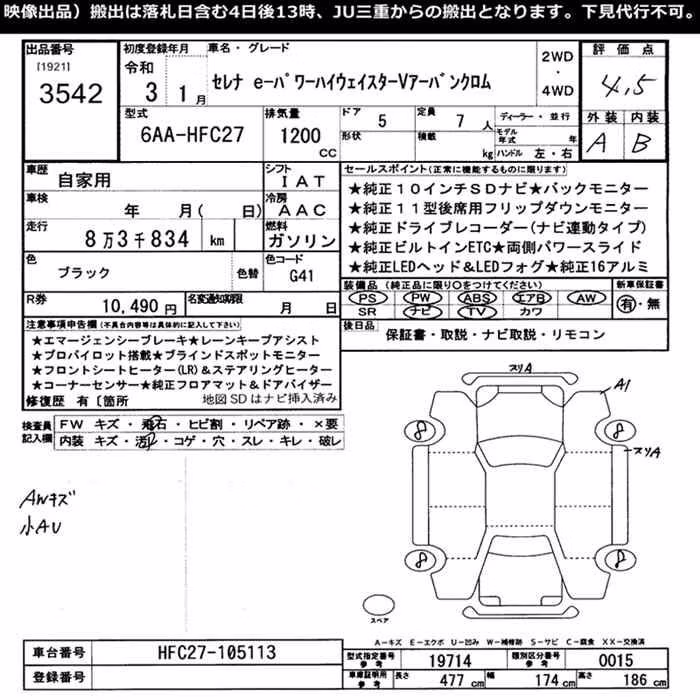 映像出品）搬出は落札日含む4日後13時、JU三重からの搬出となります。下見代行不可。
出品番号
[1921]
3542
初度登録年月
令和
3 1月
車名・グレード
セレナ e-パワーハイウェイスターVアーバンクロム
2WD
・
4WD
評価点
4.5
外装 内装
A B
型式
6AA-HFC27
排気量
1200
CC
ドア
5
形状
定員
7人
積載
kg
ディーラー・並行
モデル年式 年
ハンドル 左・右
車歴
自家用
シフト
IAT
車検
年 月( 日)
冷房
AAC
走行
8万3千834 km
燃料
ガソリン
色
ブラック
色替
色コード
G41
R券
10,490円
名変通知期限
月 日
セールスポイント(正常に機能するものに限ります)
★純正10インチSDナビ★バックモニター
★純正11型後席用フリップダウンモニター
★純正ドライブレコーダー(ナビ連動タイプ)
★純正ビルトインETC★両側パワースライド
★純正LEDヘッド＆LEDフォグ★純正16アルミ
装備品 (純正品に限り○をつけてください)
PS PW ABS エアB AW
SR ナビ TV カワ
新車保証書
有・無
後日品
保証書・取説・ナビ取説・リモコン
注意事項申告欄(不具合内容等は具体的に記入して下さい)
★エマージェンシーブレーキ★レーンキープアシスト
★プロパイロット搭載★ブラインドスポットモニター
★フロントシートヒーター(LR)＆ステアリングヒーター
★コーナーセンサー★純正フロアマット＆ドアバイザー
修復歴 有〔箇所 地図SDはナビ挿入済み
検査員
記入欄
FW キズ・飛石・ヒビ割・リペア跡・×要
内装 キズ・汚レ・コゲ・穴・スレ・キレ・破レ
AWキズ
小AU
スリA
A1
スリA
8
8
8
8
スペア
A-キズ E-エクボ U-凹み W-補修跡 S-サビ C-腐食 XX-交換済
車台番号
HFC27-105113
登録番号
型式指定番号
参考
19714
類別区分番号
参考
0015
車庫証明用
参考
長さ 477 cm 幅 174 cm 高さ 186 cm